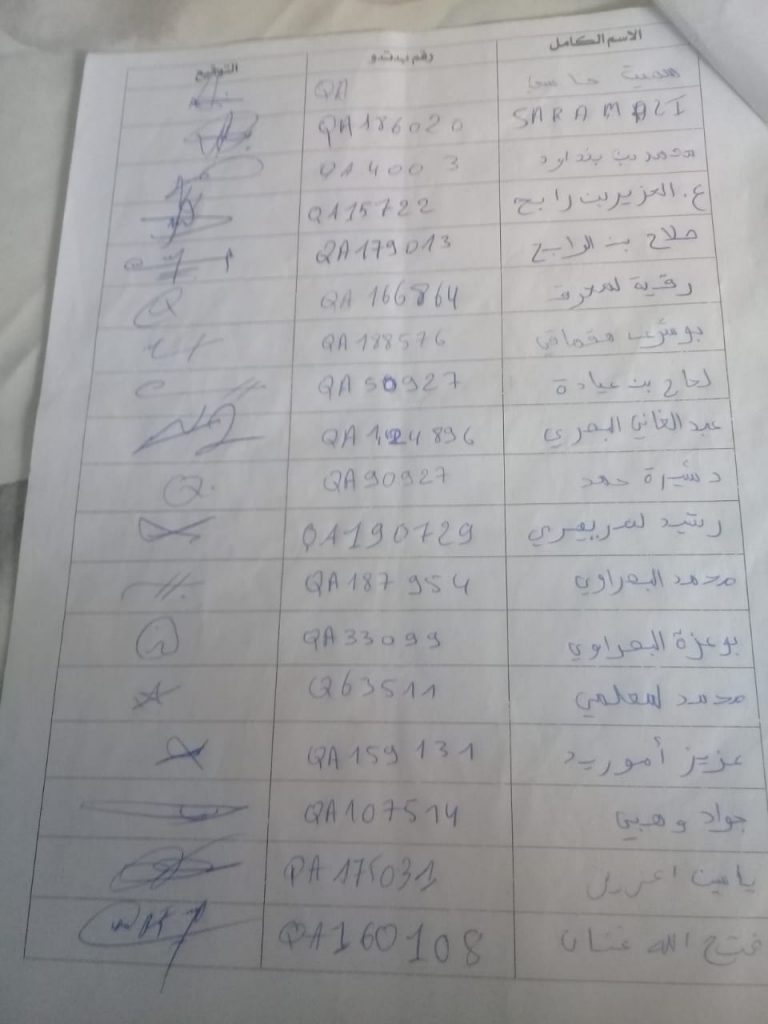 الاسم الكامل رقم ب.ت.و التوقيع
QA
SARA MAZI QA186020
محمد بن بنداود QA400 3
ع. العزيز بن رابح Q115722
صلاح بن الرابح QA179013
رقية لمعرف QA 166864
QA188576
لحاج بن عيادة QA50927
عبد الغاني البصري QA124896
دشيرة حمد QA90927
رشيد QA190729
محمد البصراوي QA187954
بوعزة البصراوي QA33099
محمد لمعلمي Q63511
عزيز أموريد QA159131
جواد وهبي QA107514
ياسين QA175031
فتح الله QA160108